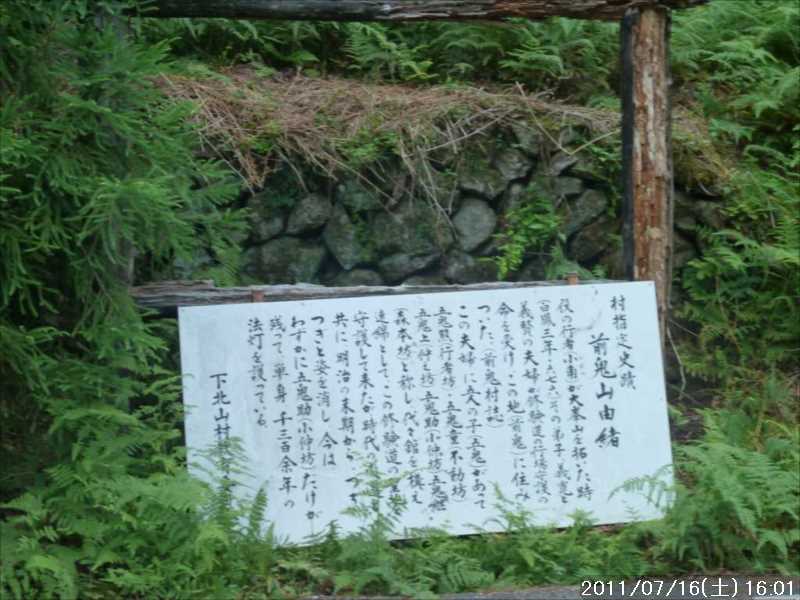 村指定史蹟
前鬼山由緒
役の行者小角が大峯山を拓いた時
(白鳳三年・六七六)その弟子、義覚と
義賢の夫婦が修験道の行場守護の
命を受け、この地(前鬼)に住み
つった。(前鬼村誌)
この夫婦に五人の子(五鬼)があって
五鬼熊(行者坊)・五鬼童(不動坊)
五鬼上(仲之坊)五鬼助(小仲坊)五鬼継
(森本坊)と称し代々館を構え
連錦として、この修験道の
守護して来たが時代の
共に明治の末期から、つぎ
つぎと姿を消し、今は
わずかに五鬼助(小仲坊)だけが
残って、単身、千三百余年の
法灯を護っている。
下北山村
2011/07/16(土) 16:01